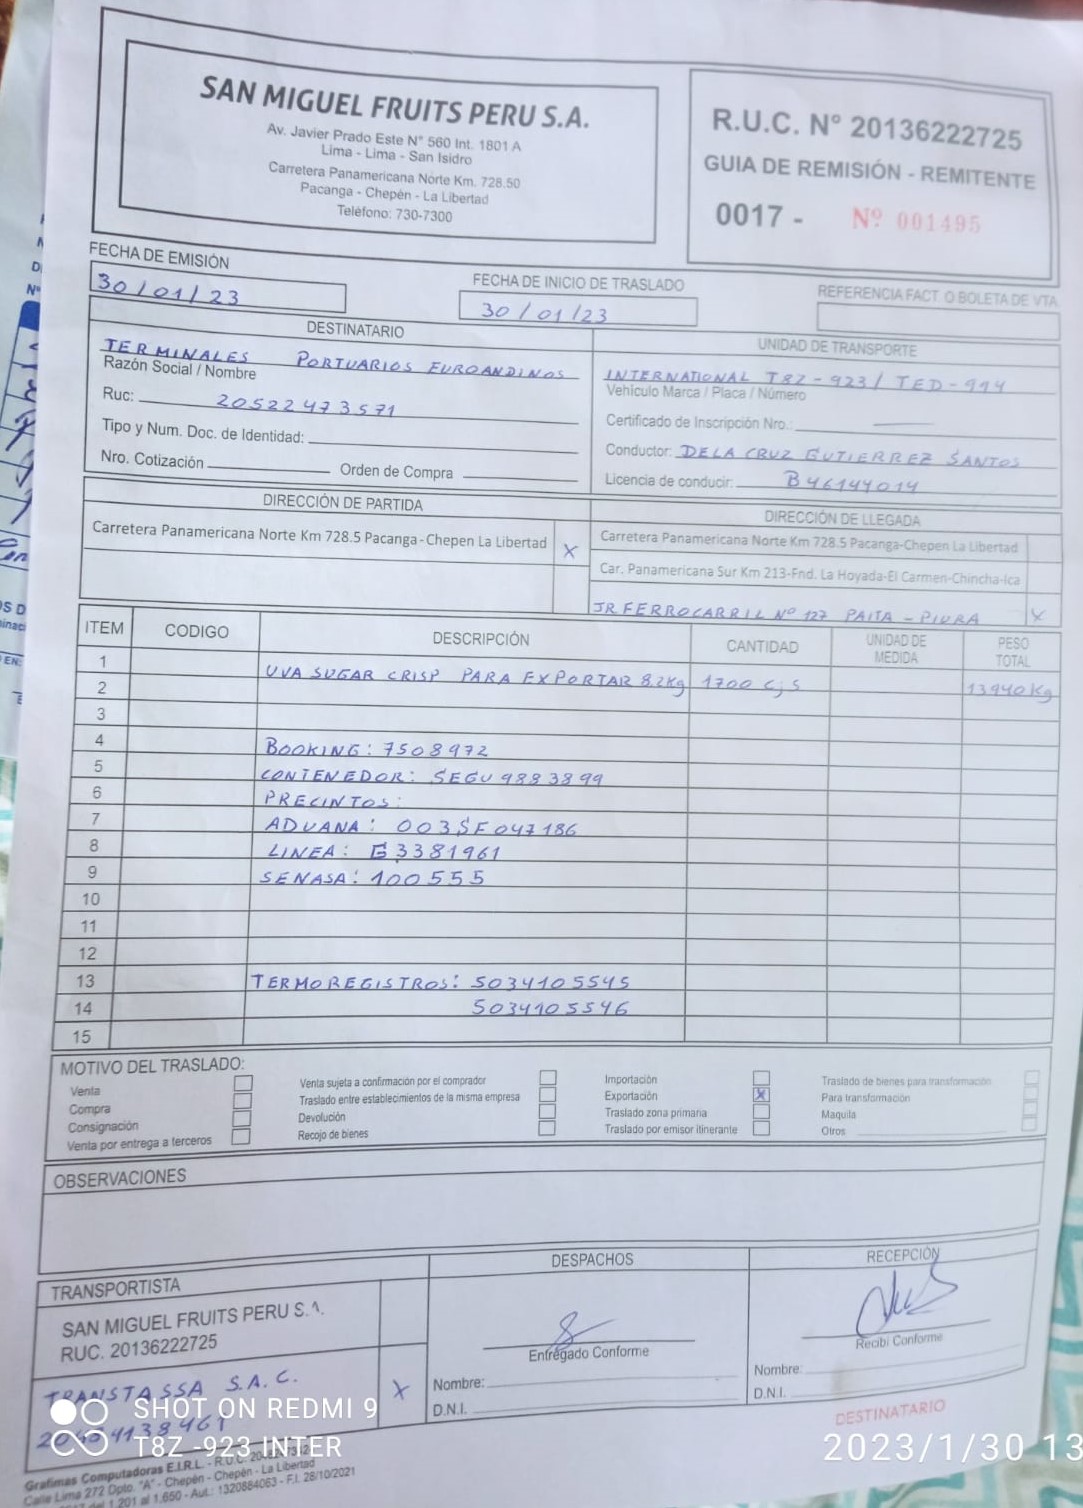 SAN MIGUEL FRUITS PERU S.A.
Av. Javier Prado Este N° 560 Int. 1801 A
Lima - Lima - San Isidro
Carretera Panamericana Norte Km. 728.50
Pacanga - Chepén - La Libertad
Teléfono: 730-7300
R.U.C. N° 20136222725
GUIA DE REMISIÓN - REMITENTE
0017 - Nº 001495
FECHA DE EMISIÓN
30/01/23
FECHA DE INICIO DE TRASLADO
30/01/23
REFERENCIA FACT. O BOLETA DE VTA
DESTINATARIO
TERMINALES PORTUARIOS EUROANDINOS
Razón Social / Nombre
Ruc: 20522473571
Tipo y Num. Doc. de Identidad:
Nro. Cotización Orden de Compra
UNIDAD DE TRANSPORTE
INTERNATIONAL T8Z-923/ TED-914
Vehículo Marca / Placa / Número
Certificado de Inscripción Nro.:
Conductor: DE LA CRUZ GUTIERREZ SANTOS
Licencia de conducir: B46144014
DIRECCIÓN DE PARTIDA
Carretera Panamericana Norte Km 728.5 Pacanga-Chepen La Libertad X
DIRECCIÓN DE LLEGADA
Carretera Panamericana Norte Km 728.5 Pacanga-Chepen La Libertad
Car. Panamericana Sur Km 213-Fnd. La Hoyada-El Carmen-Chincha-Ica
JR FERROCARRIL Nº 127 PAITA - PIURA X
ITEM CODIGO DESCRIPCIÓN CANTIDAD UNIDAD DE MEDIDA PESO TOTAL
1 UVA SUGAR CRISP PARA EXPORTAR 8.2Kg 1700 Cjs 13940 Kg
2
3
4 BOOKING: 7508972
5 CONTENEDOR: SEGU 9883899
6 PRECINTOS:
7 ADUANA: 003SF047186
8 LINEA: G3381961
9 SENASA: 100555
10
11
12
13 TERMOREGISTROS: 5034105545
14 5034105546
15
MOTIVO DEL TRASLADO:
Venta
Compra
Consignación
Venta por entrega a terceros
Venta sujeta a confirmación por el comprador
Traslado entre establecimientos de la misma empresa
Devolución
Recojo de bienes
Importación
Exportación X
Traslado zona primaria
Traslado por emisor itinerante
Traslado de bienes para transformación
Para transformación
Maquila
Otros
OBSERVACIONES
TRANSPORTISTA
SAN MIGUEL FRUITS PERU S.A.
RUC. 20136222725
TRANSTASSA S.A.C. X
DESPACHOS
Entregado Conforme
Nombre:
D.N.I.
RECEPCIÓN
Recibi Conforme
Nombre:
D.N.I.
DESTINATARIO
SHOT ON REDMI 9
T8Z -923 INTER
2023/1/30 13
Grafimas Computadoras E.I.R.L. - R.U.C.
Calle Lima 272 Dpto. "A" - Chepén - Chepén - La Libertad
del 1,201 al 1,650 - Aut.: 1320884063 - F.I. 28/10/2021